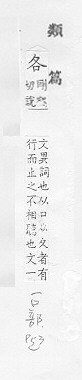 類篇
各
剛鶴
切說
文異詞也从口夂夂者有
行而止之不相聽也文一
口部
P53